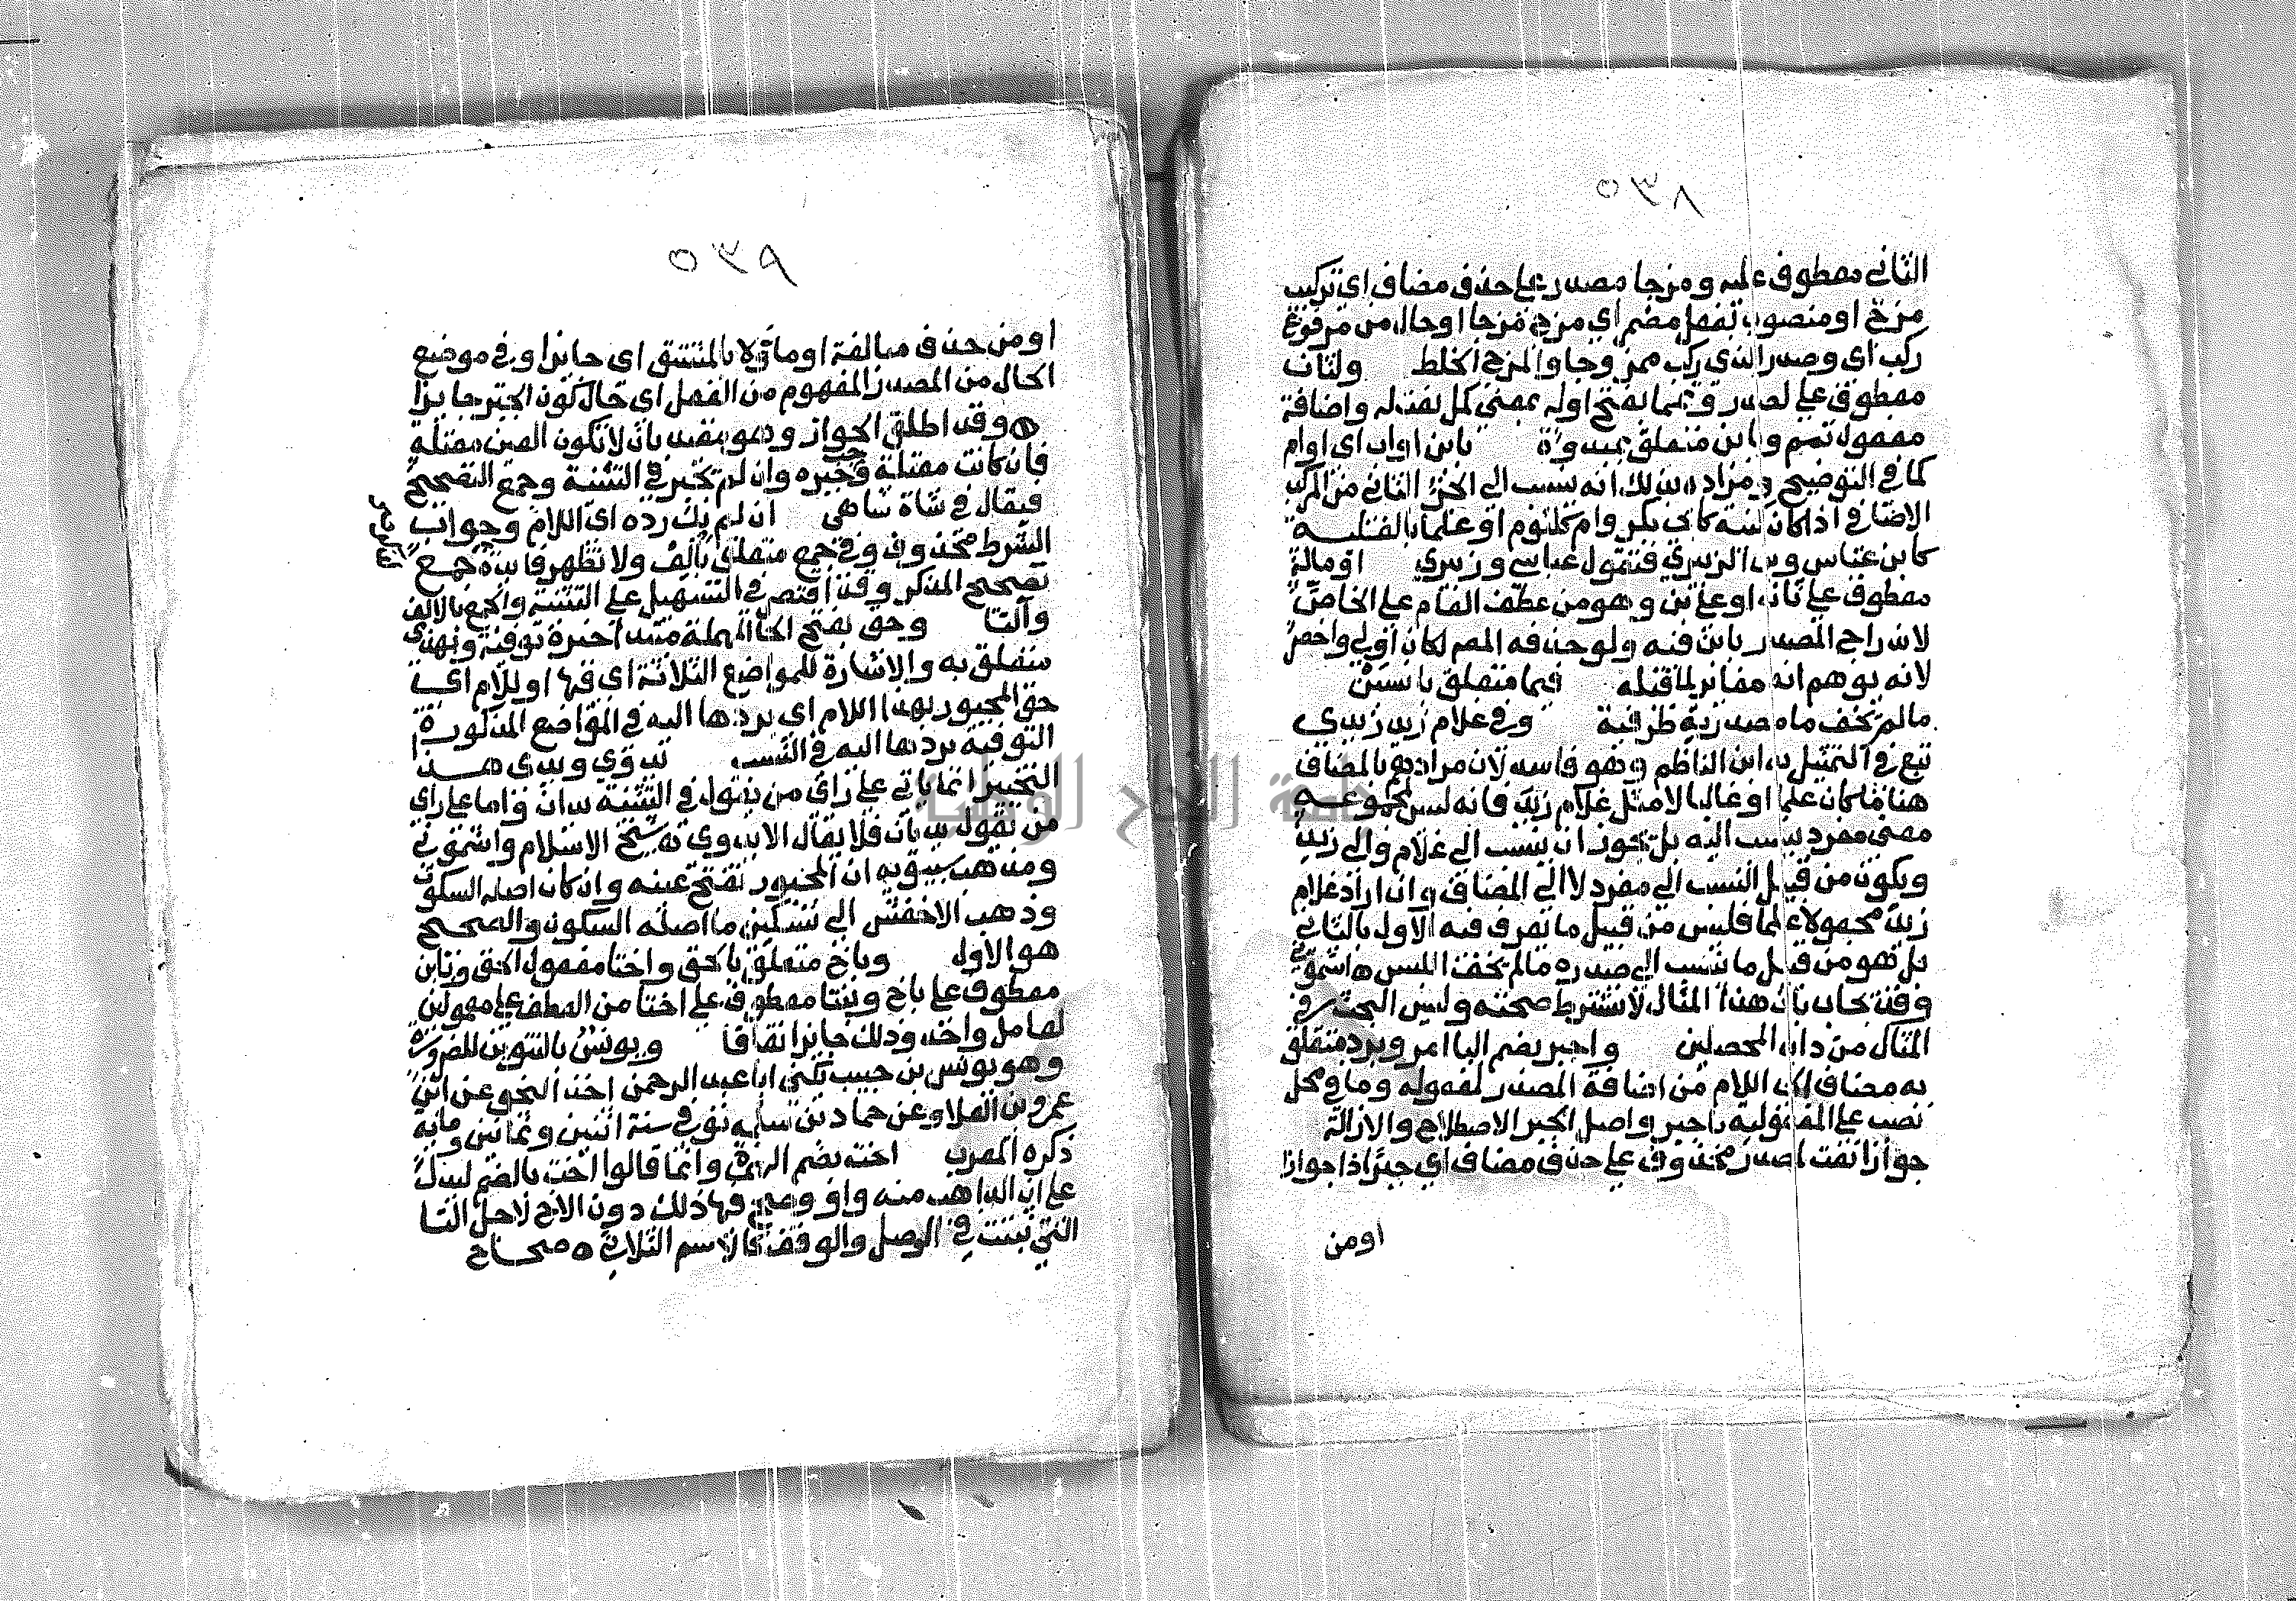 ٥٣٨
الثاني معطوف عليه ومزجا مصدر علي حذف مضاف اي تركيب
مزج او منصوب بفعل مضمر اي مزج مزجا او حال من مرفوع
ركب اي وصدر الذي ركب ممزوجا والمزج الخلط ولثان
معطوف علي لصدر وتمما بفتح اوله بمعني كمل نعت له واضافة
مفعول تمم وبابن متعلق بمبدوة بابن او اب اي او ام
كما في التوضيح ومراده بذلك انه ينسب الي الجزء الثاني من المركب
الاضافي اذا كان كنية كابي بكر وام كلثوم او علما بالغلبة
كابن عباس وبن الزبير فتقول عباسي وزبيري او ماله
معطوف علي ثان او علي بن وهو من عطف العام علي الخاص
لانه راجع المصدر بابن فيه ولو حذفه المص لكان اولي واخصر
لانه يوهم انه مغاير لما قبله فيما متعلق بانسبن
مالم يخف ما مصدرية ظرفية وفي غلام زيد زيدي
تبع في التمثيل به ابن الناظم وهو فاسد لان مراده بالمضاف
هنا ما كان علما او غالبا لا مثل غلام زيد فانه ليس لمجموعه
معني مفرد ينسب اليه بل يجوز ان ينسب الي غلام والي زيد
ويكون من قبيل النسب الي مفرد لا الي المضاف وان اراد غلام
زيد مجعولا علما فليس من قبيل ما تعرف فيه الاول بالثاني
بل هو من قبيل ما ينسب الي صدره مالم يخف اللبس ه اشموني
وقد يجاب بان هذا المثال لا يشترط صحته وليس البحث في
المثال من داب المحصلين واجبر بضم البا امر وبرد متعلق
به مضاف الي اللام من اضافة المصدر لمفعوله وما في محل
نصب علي المفعولية باجبر واصل الجبر الاصطلاح والازالة
جوازا نعت لمصدر محذوف علي حذف مضاف اي جبرا ذا جواز
او من
٥٣٩
او من حذف مبالغة او ماولا بالمشتق اي جايزا وفي موضع
الحال من المصدر المفهوم من الفعل اي حال كون الجبر جايزا
ه وقد اطلق الجواز وهو مقيد بان لا تكون العين معتلة
فان كانت معتلة وجب جبره وان لم يجبر في التثنية وجمع التصحيح
فيقال في شاة شاهي ان لم يك رده اي اللام وجواب
الشرط محذوف وفي جمعي متعلق بالف ولا تظهر فايدة جمع
تصحيح المذكر وقد اقتصر في التسهيل علي التثنية والجمع بالالف
والتا وحق بفتح الحا المهملة مبتدا خبره توفية وبهذي
متعلق به والاشارة للمواضع الثلاثة اي فيها او للام اي
حق المجبور بهذا اللام اي بردها اليه في المواضع المذكورة
التوفية بردها اليه في النسب يدوي ويدي هذا
التخيير انما ياتي علي راي من يقول في التثنية يدان واما علي راي
من يقول يديان فلا يقال الا يدوي ه شيخ الاسلام واشموني
ومذهب سيبويه ان المجبور تفتح عينه وان كان اصله السكون
وذهب الاخفش الي تسكين ما اصله السكون والصحيح
هو الاول وباخ متعلق بالحق واختا مفعول الحق وبابن
معطوف علي باخ وبنتا معطوف علي اختا من العطف علي معمولين
لعامل واحد وذلك جايز اتفاقا ويونس بالتنوين للضرورة
وهو يونس بن حبيب يكني ابا عبد الرحمن اخذ النحو عن ابي
عمرو بن العلا وعن حماد بن سلمه توفي سنة اثنين وثمانين ومايه
ذكره المعرب اخته بضم الهمزة وانما قالوا اخت بالضم ليدل
علي ان الذاهب منه واو وصح فيها ذلك دون الاخ لاجل التا
التي تثبت في الوصل والوقف كالاسم الثلاثي ه صحاح